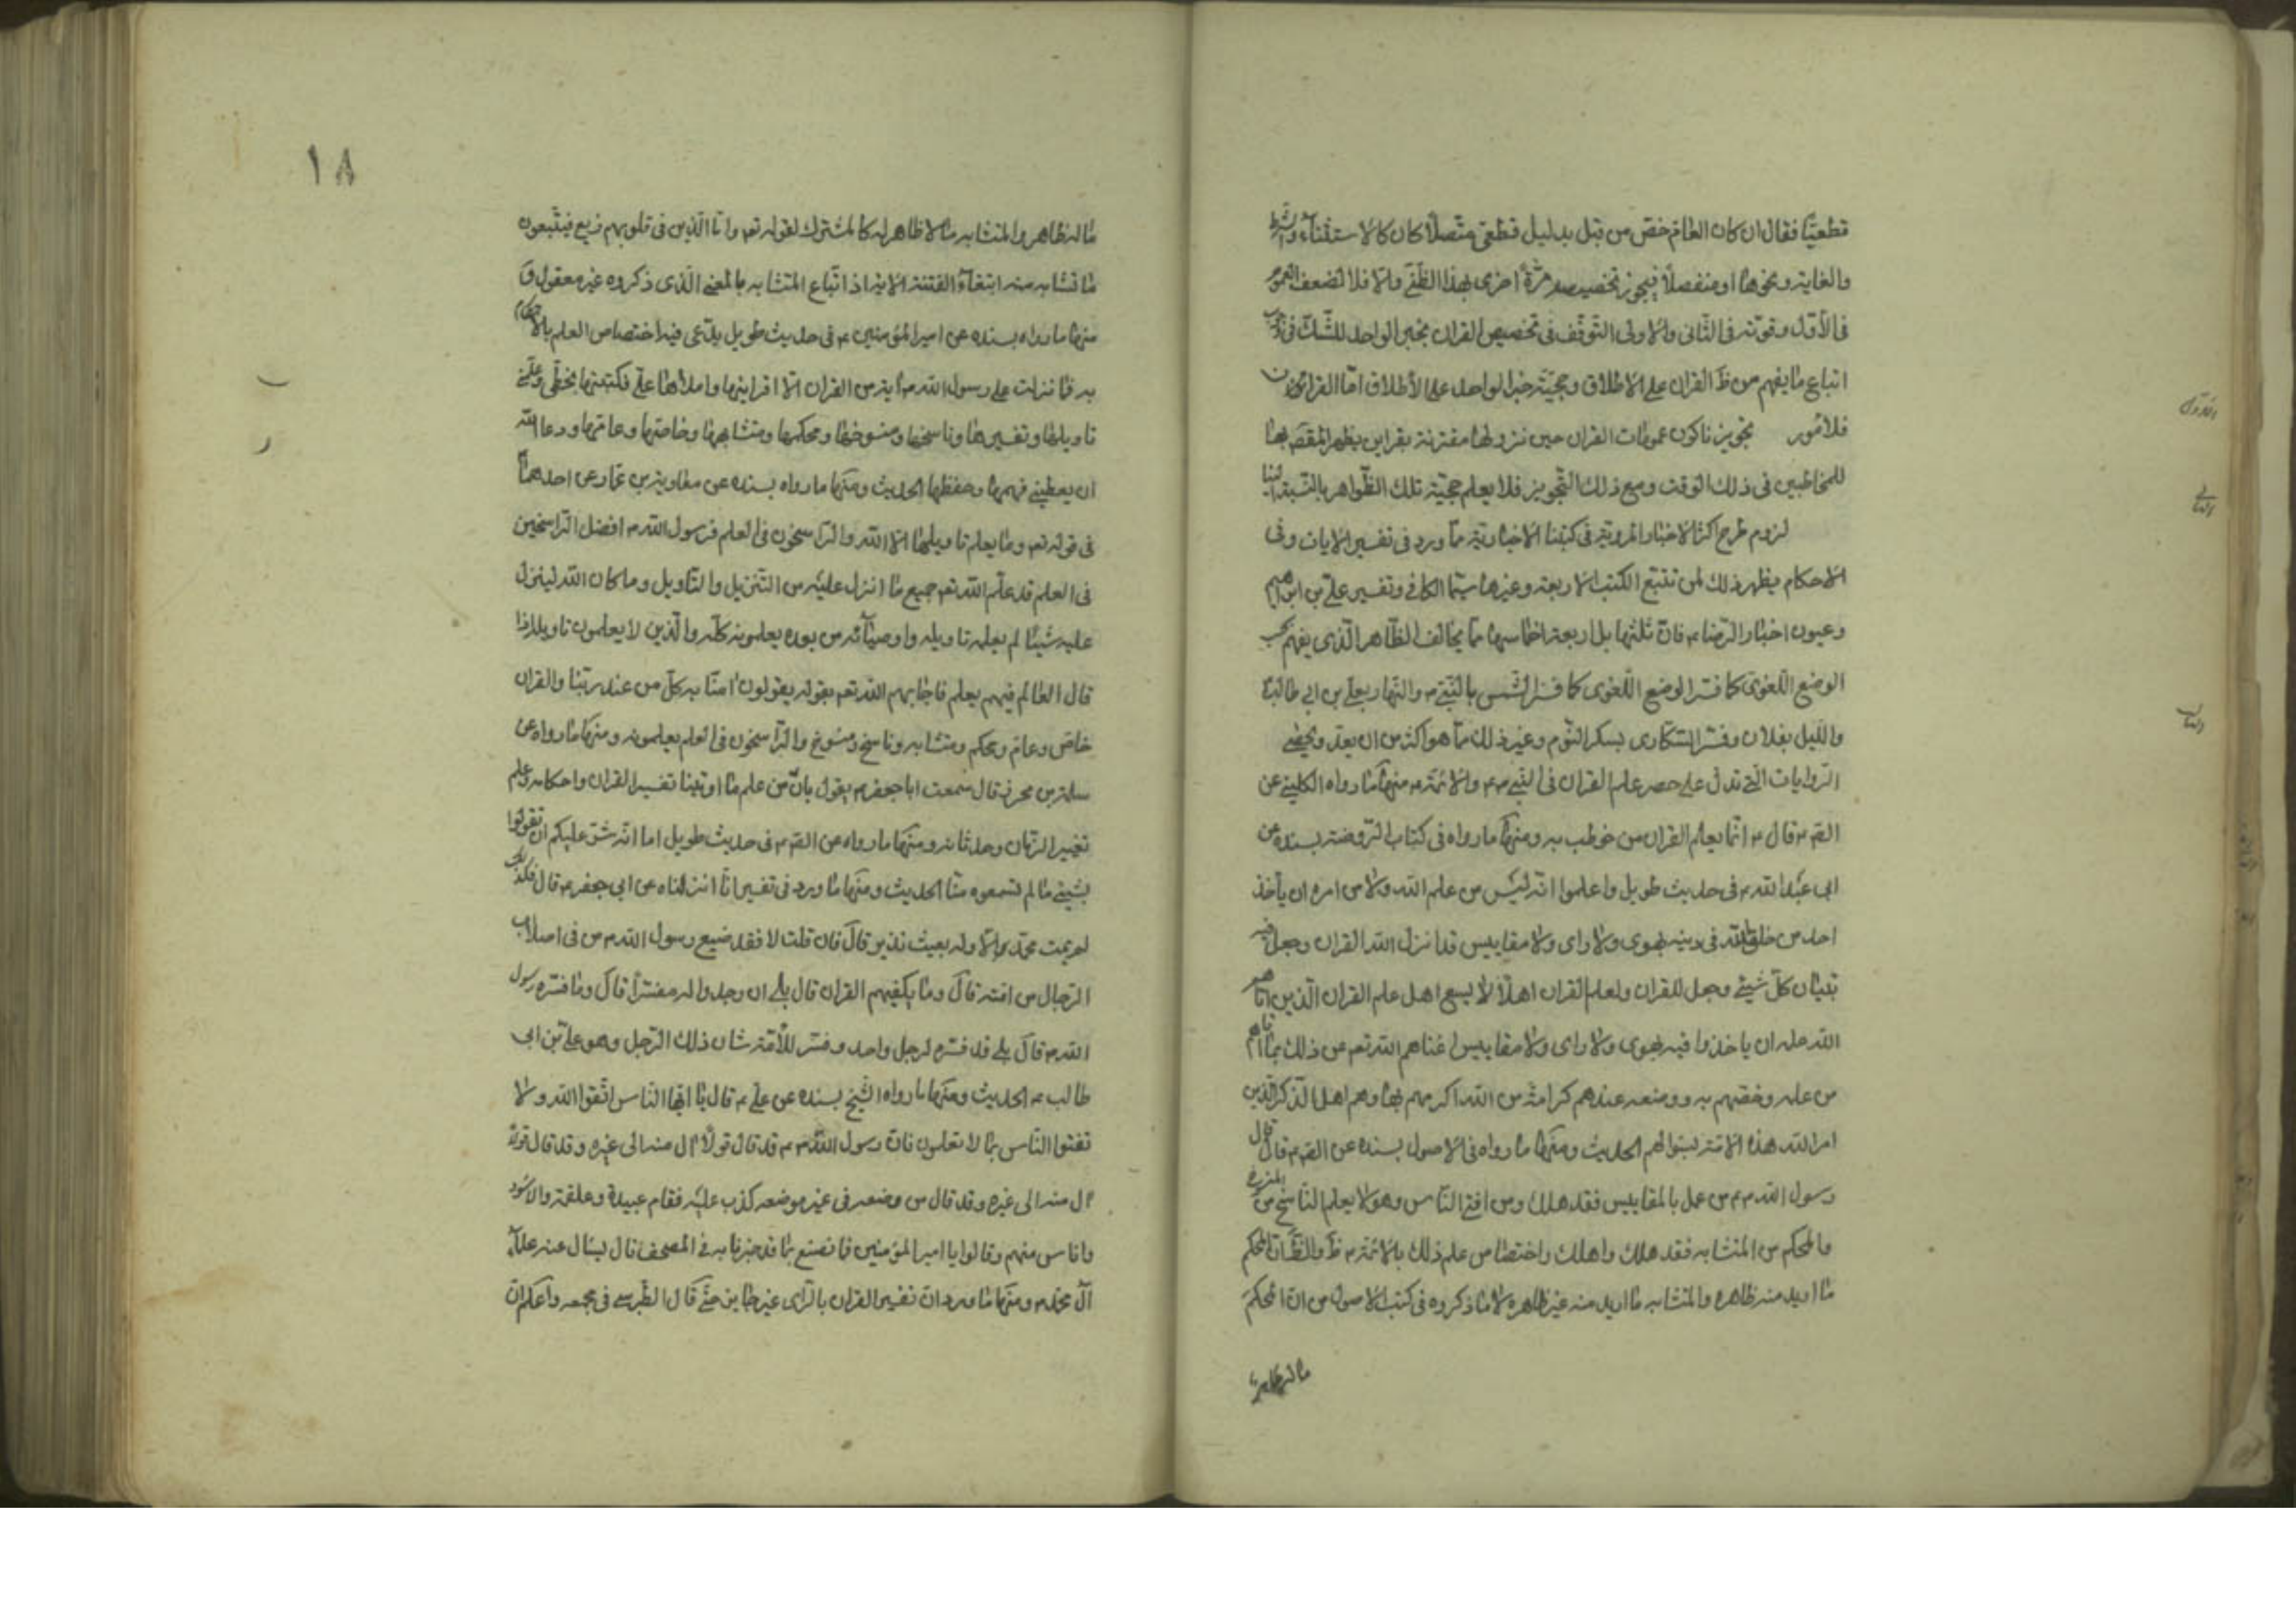 قطعيّا فقال ان كان العام خصّ من قبل بدليل قطعىّ متّصلا كان كالاستثناء والشرط
والغاية ونحوها او منفصلا فيجوز تخصيصه مرّة اخرى بهذا الظنّى والّا فلا لضعف العموم
فى الأوّل وقوّته فى الثّانى والاولى التّوقّف فى تخصيص القران بخبر الواحد للشّكّ فى
اتباع ما يفهم من ظ القران على الاطلاق وحجيّة خبر الواحد على الأطلاق امّا القران
فلامور تجويز ناكون عمومات القران حين نزولها مقترنة بقراين يظهر المقصد بها
للمخاطبين فى ذلك الوقت ومع ذلك التّجويز فلا يعلم حجيّة تلك الظّواهر بالنّسبة الينا
لزوم طرح اكثر الاخبار المرويّة فى كتبنا الاخباريّة ممّا ورد فى تفسير الايات وفى
الاحكام يظهر ذلك لمن تتبّع الكتب الاربعة وغيرها سيّما الكافى وتفسير علىّ بن ابراهيم
وعيون اخبار الرّضا م فانّ ثلثها بل اربعة اخماسها ممّا يخالف الظّاهر الّذى يفهم بحسب
الوضع اللّغوىّ كما فسّر الوضع اللّغوى كما فسّر الشّمس بالنّبىّ م والنّهار بعلىّ بن ابى طالب
واللّيل بفلان وفسّر السّكارى بسكر النّوم وغير ذلك ممّا هو اكثر من ان يعدّ ويحصى
الرّوايات الّتى تدلّ على حصر علم القران فى النّبى صم والائمّة م منها ما رواه الكلينى عن
القم م قال م انّما يعلم القران من خوطب به ومنها ما رواه فى كتاب الرّوضة بسنده عن
ابى عبد الله م فى حديث طويل واعلموا انّه ليس من علم الله ولا من امره ان يأخذ
احد من خلق الله فى دينه بهوى ولا راى ولا مقاييس قد انزل الله القران وجعل فيه
تبيان كلّ شيئ وجعل للقران ولعلم القران اهلا لا يسع اهل علم القران الّذين اتاهم
الله علمه ان ياخذوا فيه بهوى ولا راى ولا مقاييس اغناهم الله تعم عن ذلك بما اتاهم
من علمه وخصّهم به وومنعه عندهم كرامة من الله اكرمهم بها وهم اهل الذّكر الّذين
امر الله هذه الامّة بسؤالهم الحديث ومنها ما رواه فى الاصول بسنده عن القم م قال قال
رسول الله صم من عمل بالمقاييس فقد هلك ومن افتى النّاس وهو لا يعلم النّاسخ من المنسوخ
والمحكم من المتشابه فقد هلك واهلك واختصاص علم ذلك بالائمّة م ظ والظّ انّ المحكم
ما اريد منه ظاهره والمتشابه ما اريد منه غير ظاهره لا ما ذكروه فى كتب الاصول من انّ المحكم
ما له ظاهر
١٨
ما له ظاهر والمتشابه ما لا ظاهر له كالمشترك لقوله تعم وامّا الّذين فى قلوبهم زيع فيتّبعون
ما تشابه منه ابتغاء الفتنة الاية اذ اتّباع المتشابه بالمعنى الّذى ذكروه غير معقول و
منها ما رواه بسنده عن امير المؤمنين م فى حديث طويل يدّعى فيه اختصاص العلم بالاحكام
به فما نزلت على رسول الله م اية من القران الّا اقرانيها واملاها علىّ فكتبتها بخطّى وعلّمنى
تاويلها وتفسيرها وناسخها ومنسوخها ومحكمها ومتشابهها وخاصّها وعامّها ودعا الله
ان يعطينى فهمها وحفظها الحديث ومنها ما رواه بسنده عن معاوية بن عمّار عن احدهما
فى قوله تعم وما يعلم تاويلها الّا الله والرّاسخون فى العلم فرسول الله م افضل الرّاسخين
فى العلم قد علّم الله تعم جميع ما انزل عليه من التّنزيل والتّاويل وما كان الله لينزل
عليه شيئا لم يعلمه تاويله واوصيائه من بعده يعلمونه كلّه والّذين لا يعلمون تاويله اذا
قال العالم فيهم يعلم فاجابهم الله تعم بقوله يقولون امنّا به كلّ من عند ربّنا والقران
خاصّ وعامّ ومحكم ومتشابه وناسخ ومنسوخ والرّاسخون فى العلم يعلمونه ومنها ما رواه عن
سلمة بن محرز قال سمعت ابا جعفر م يقول بانّ من علم ما اوتينا تفسير القران واحكامه وعلم
تغيير الزّمان وحدثانه ومنها ما رواه عن القم م فى حديث طويل اما انّه شقّ عليكم ان تقولوا
بشيئ ما لم تسمعوه منّا الحديث ومنها ما ورد فى تفسير انّا انزلناه عن ابى جعفر م قال فكذلك
لم يمت محمّد م الّا وله بعيث نذير قال فان قلت لا فقد ضيع رسول الله م من فى اصلاب
الرّجال من امّته قال وما يكفيهم القران قال بلى ان وجدوا له مفسّرا قال وما فسّره رسول
الله م قال بلى قد فسّره لرجل واحد وفسّر للأمّة شان ذلك الرّجل وهو علىّ بن ابى
طالب م الحديث ومنها ما رواه الشّيخ بسنده عن علىّ م قال يا ايّها النّاس اتّقوا الله ولا
تفتوا النّاس بما لا تعلمون فانّ رسول الله صم م قد قال قولا ال منه الى غيره وقد قال قولا
ال منه الى غيره وقد قال من وضعه فى غير موضعه كذب عليه فقام عبيدة وعلقمة والاسود
واناس منهم وقالوا يا امير المؤمنين فما نصنع بما قد خبرنا به فى المصحف قال يسال عنه علماء
ال محمّد م ومنها ما ورد ان تفسير القران بالرّاى غير جايز حتّى قال الطّبرسى فى مجمعه واعلم انّ